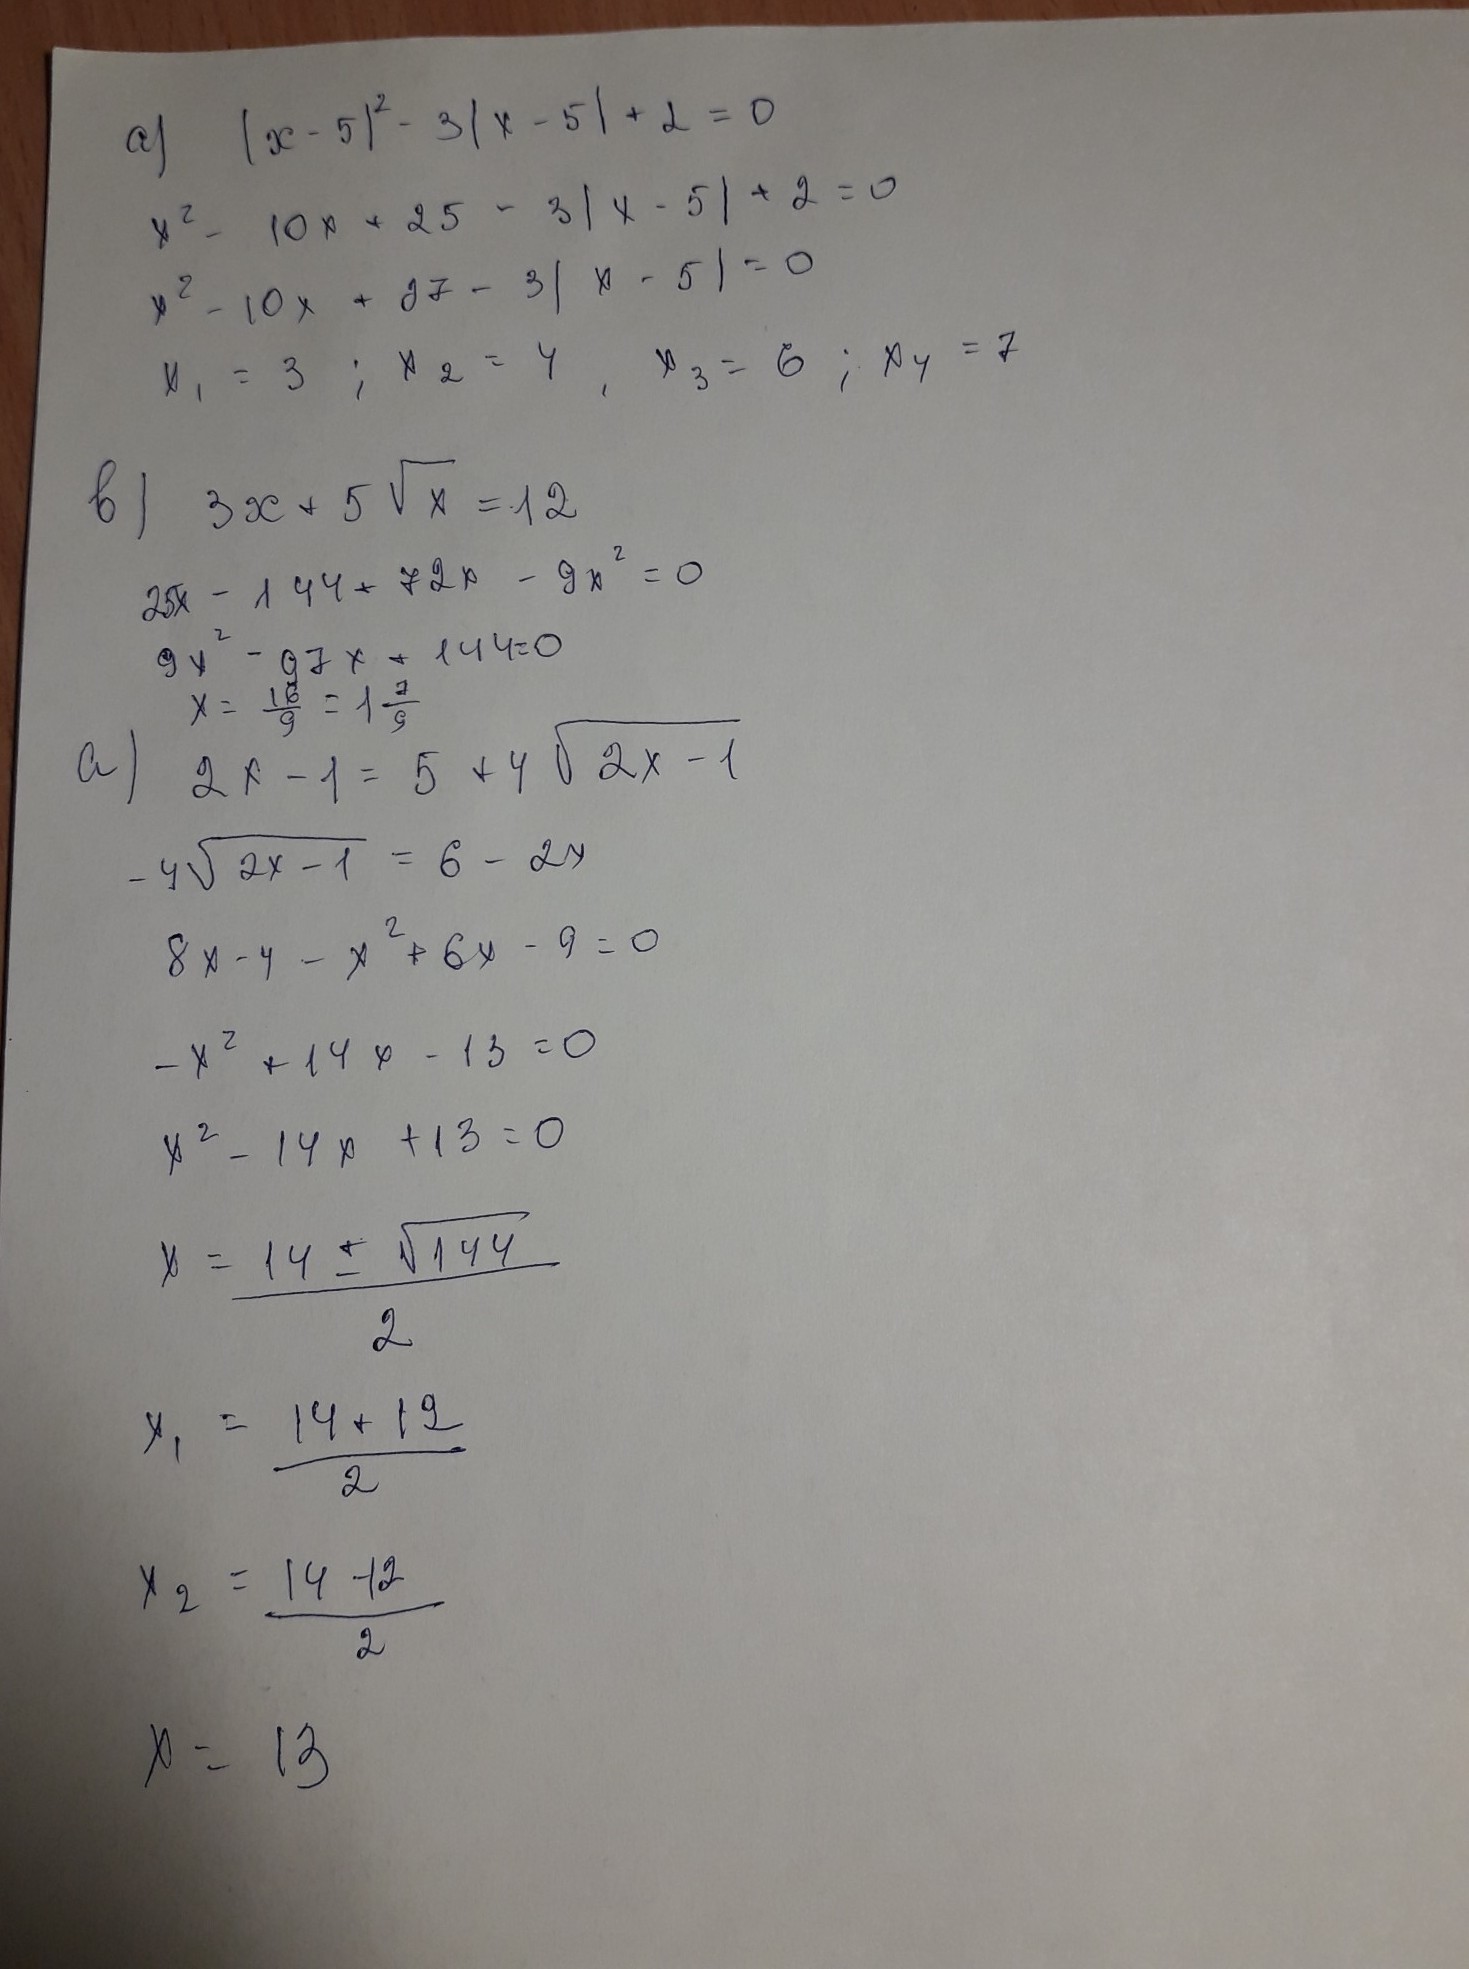 а) |x - 5|² - 3|x - 5| + 2 = 0
x² - 10x + 25 - 3|x - 5| + 2 = 0
x² - 10x + 27 - 3|x - 5| = 0
x₁ = 3 ; x₂ = 4 , x₃ = 6 ; x₄ = 7
в) 3x + 5√x = 12
25x - 144 + 72x - 9x² = 0
9x² - 97x + 144 = 0
x = 16/9 = 1 7/9
а) 2x - 1 = 5 + 4√(2x - 1)
-4√(2x - 1) = 6 - 2x
8x - 4 - x² + 6x - 9 = 0
-x² + 14x - 13 = 0
x² - 14x + 13 = 0
x = (14 ± √144)/2
x₁ = (14 + 12)/2
x₂ = (14 - 12)/2
x = 13